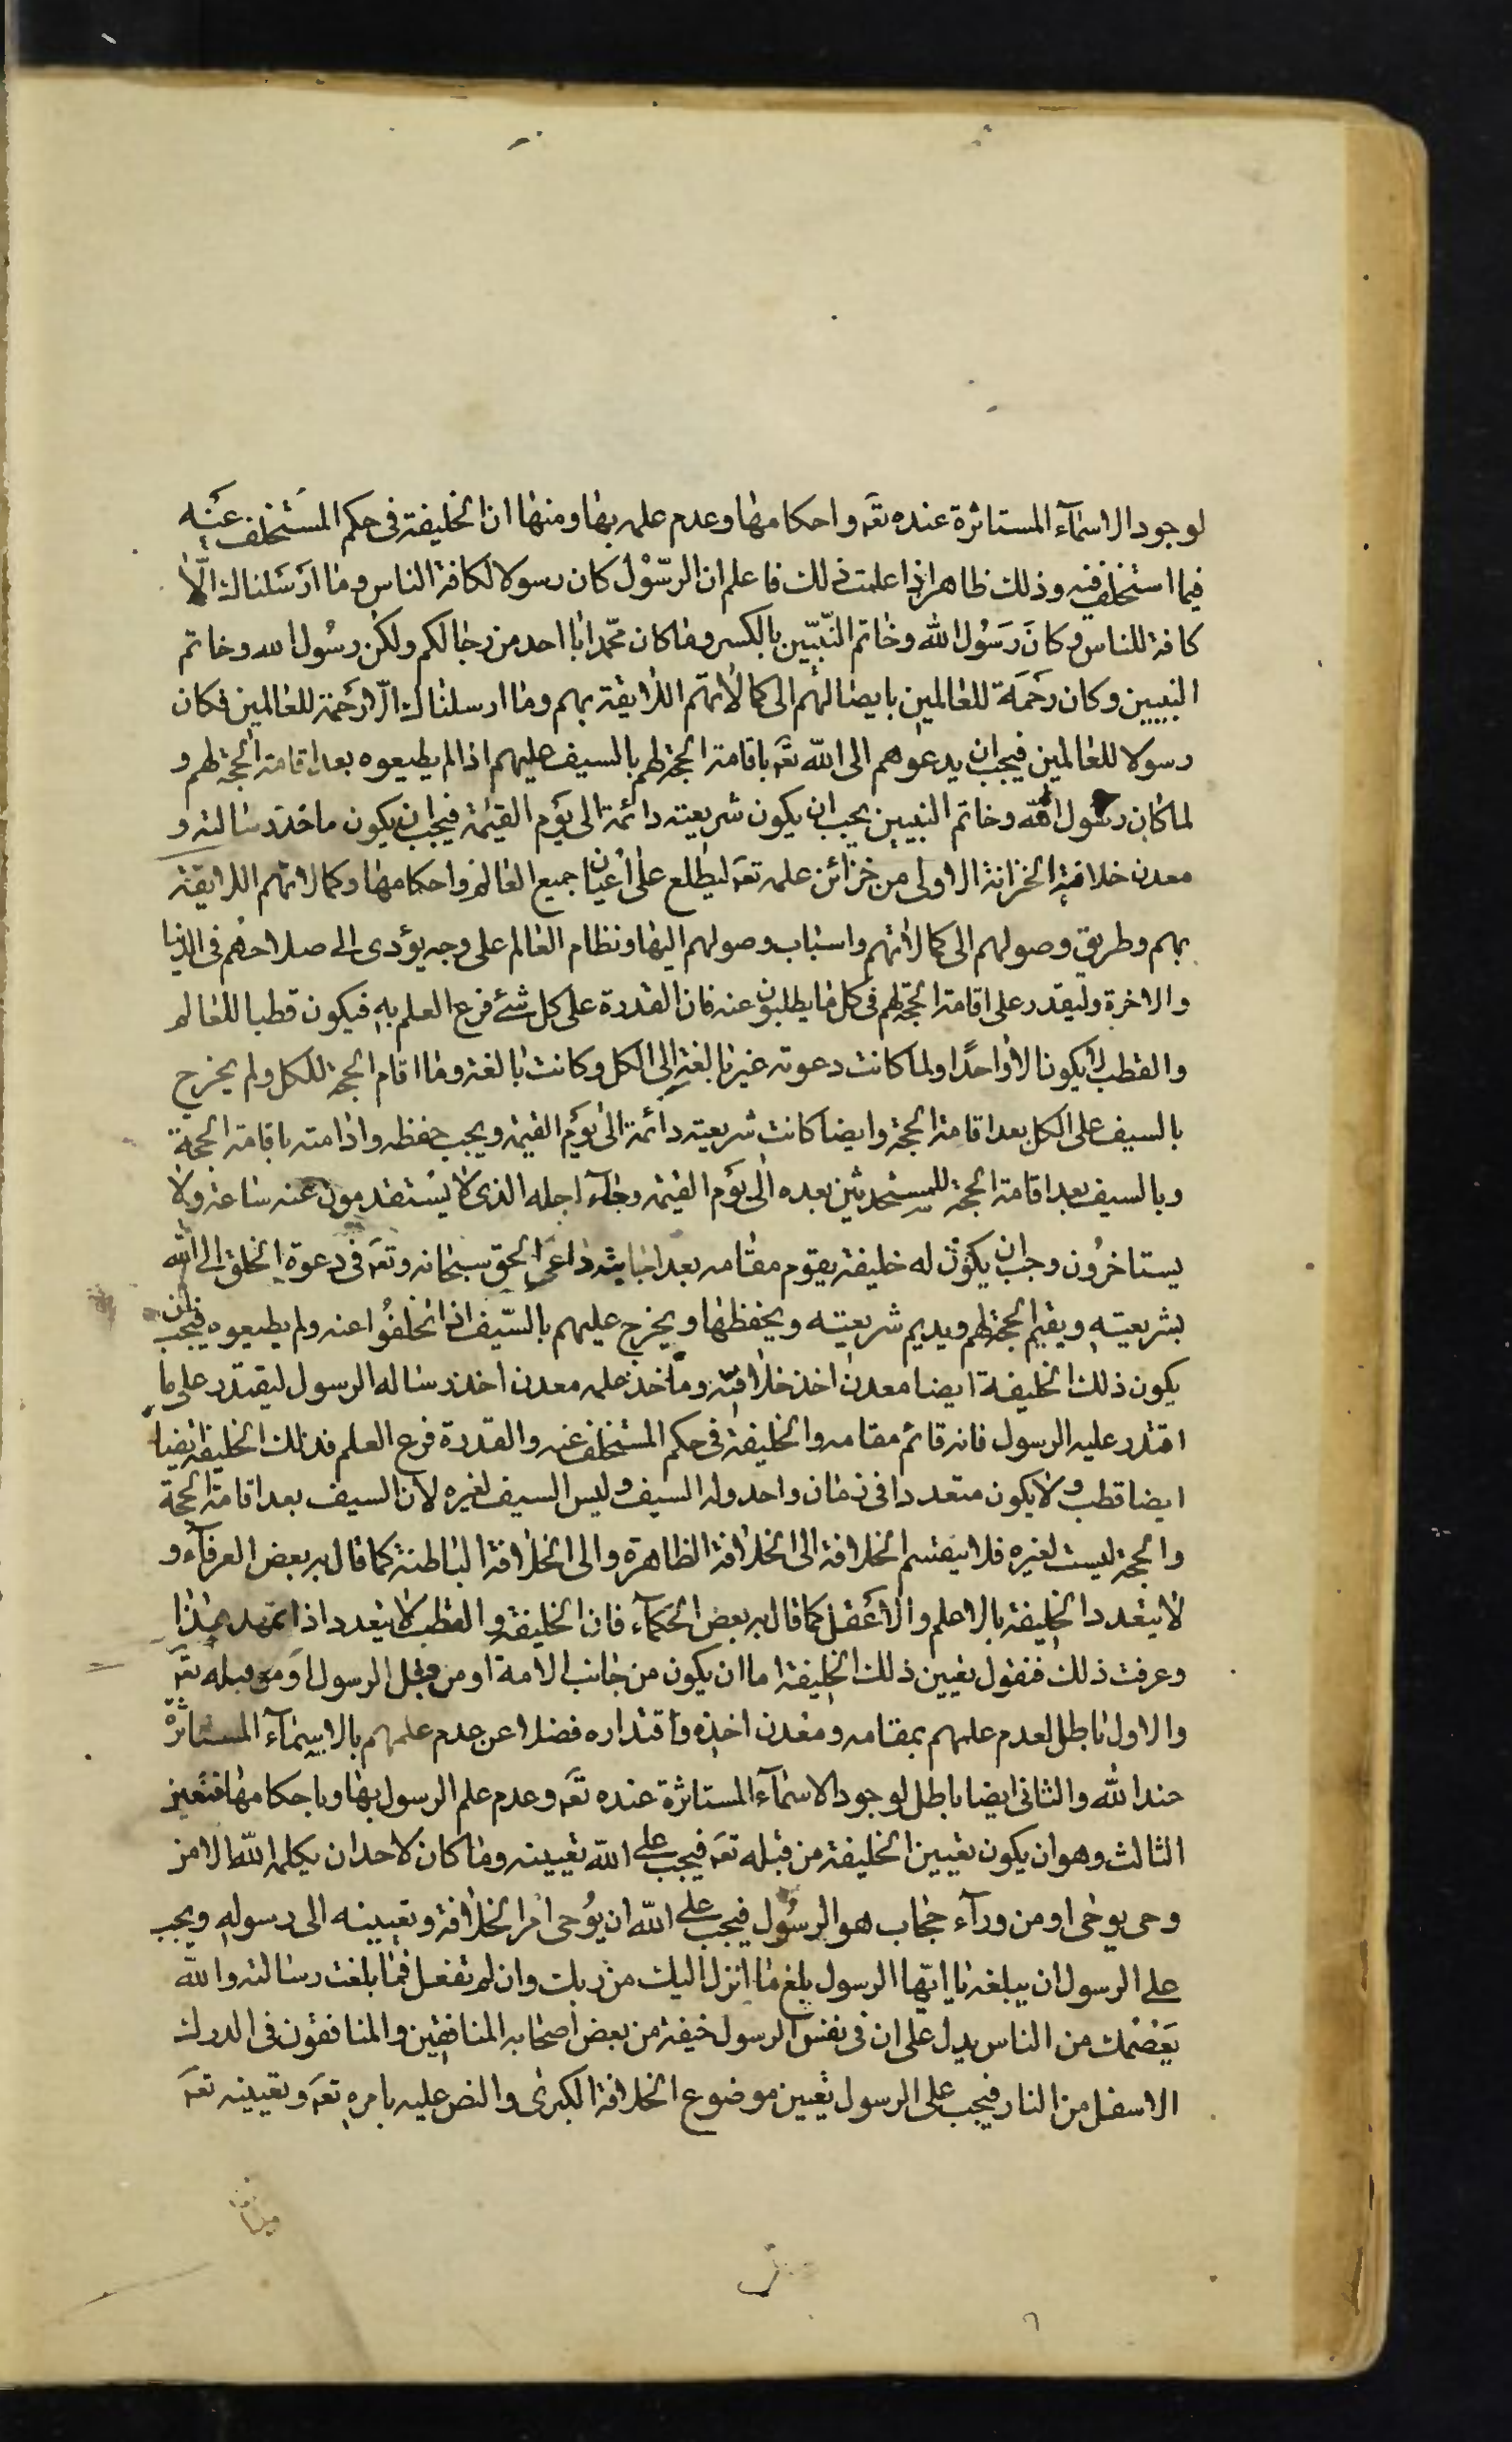 لوجود الاسمآء المستاثرة عنده تعَ واحكامها وعدم علمه بها ومنها ان الخليفة فى حكم المستخلف عَنه
فيما استخلف فيه وذلك ظاهر اذا علمت ذلك فاعلم ان الرّسوْل كان رسولا لكافة الناس وما ارَسَلناك الّا
كافة للناس وكانَ رَسُول الله وخاتم النّبيّين بالكسر وما كان محمّد ابا احد من رجالكم ولكن رسُول الله وخاتم
النبيين وكان رحَمَة للعالمين بايصالهم الى كمالاتهم اللايقة بهم وما ارسلناك الّا رحَمَة للعالمين فكان
رسولا للعالمين فيجب ان يدعوهم الى الله تعَ باقامة الحجة لهم بالسيف عليهم اذا لم يطيعوه بعد اقامة الحجة لهم و
لما كان رسول الله وخاتم النبيين يجب ان يكون شريعته دائمة الى يوَم القيمة فيجب ان يكون ماخذ رسالته و
معدن خلافته الخزانة الاولى من خزائن علمه تعَ ليطلع على اعيان جميع العالم واحكامها وكمالاتهم اللايقة
بهم وطريق وصولهم الى كمالاتهم واسباب وصولهم اليها ونظام العالم على وجه يؤدى الى صلاحهُم فى الدنيا
والاخرة وليقدر على اقامة الحجة لهم فى كل ما يطلبون عنه فان القدرة على كل شئ فرع العلم به فيكون قطبا للعالم
والقطب لا يكون الا واحدًا ولما كانت دعوته غير بالغة الى الكل وكانت بالغة وما اقام الحجة للكل ولم يخرج
بالسيف على الكل بعد اقامة الحجة وايضا كانت شريعته دائمة الى يوَم القيمة ويجب حفظه وادامته باقامة الحجة
وبالسيف بعد اقامة الحجة للمستحدثين بعده الى يوَم القيمة وجآء اجله الذى لا يستقدمون عنه ساعة ولا
يستاخرُون وجب ان يكوْن له خليفة يقوم مقامه بعد اجابته داعَى الحق سبحانه وتعَ فى دعوة الخلق الى الله
بشريعته ويقيم الحجة لهم ويديم شريعته ويحفظها ويخرج عليهم بالسّيف اذا تخلفُوا عنه ولم يطيعوه فيجب ان
يكون ذلك الخليفة ايضا معدن اخذ خلافته وماخذ علمه معدن اخذ رساله الرسول ليقتدر على ما
اقتدر عليه الرسول فانه قائم مقامه والخليفة فى حكم المستخلف عنه والقدرة فرع العلم فذلك الخليفة ايضا
ايضا قطب ولا يكون متعددا فى زمان واحد وله السيف وليس السيف لغيره لان السيف بعد اقامة الحجة
والحجة ليست لغيره فلا ينقسم الخلافة الى الخلافة الظاهرة والى الخلافة الباطنة كما قال به بعض العرفآء و
لا يتعدد الخليفة بالاعلم والاعَقل كما قال به بعض الحكمآء فان الخليفة والقطب لا يتعدد اذا تمهد هذا
وعرفت ذلك فنقول تعيين ذلك الخليفة اما ان يكون من جانب الامة او من قبل الرسول اوَ من قبله تعَ
والاول باطل لعدم علمهم بمقامه ومعدن اخذه واقتداره فضلا عن عدم علمهم بالاسمآء المستاثرة
عند الله والثانى ايضا باطل لوجود الاسمآء المستاثرة عنده تعَ وعدم علم الرسول بها وباحكامها فتعين
الثالث وهو ان يكون تعيين الخليفة من قبله تعَ فيجب على الله تعيينه وما كان لاحد ان يكلمه الله الا من
وحى يوحى او من ورآء حجاب هو الرسُول فيجب على الله ان يُوحى امر الخلافة وتعيينه الى رسوله ويجب
على الرسول ان يبلغه يا ايّها الرسول بلغ ما انزل اليك من ربك وان لم تفعل فما بلغت رسالته والله
يَعَصْمك من الناس يدل على ان فى نفس الرسول خيفة من بعض اصحابه المنافقين والمنافقون فى الدرك
الاسفل من النار فيجب على الرسول تعيين موضوع الخلافة الكبرى والنص عليه بامره تعَ وتعيينه تعَ